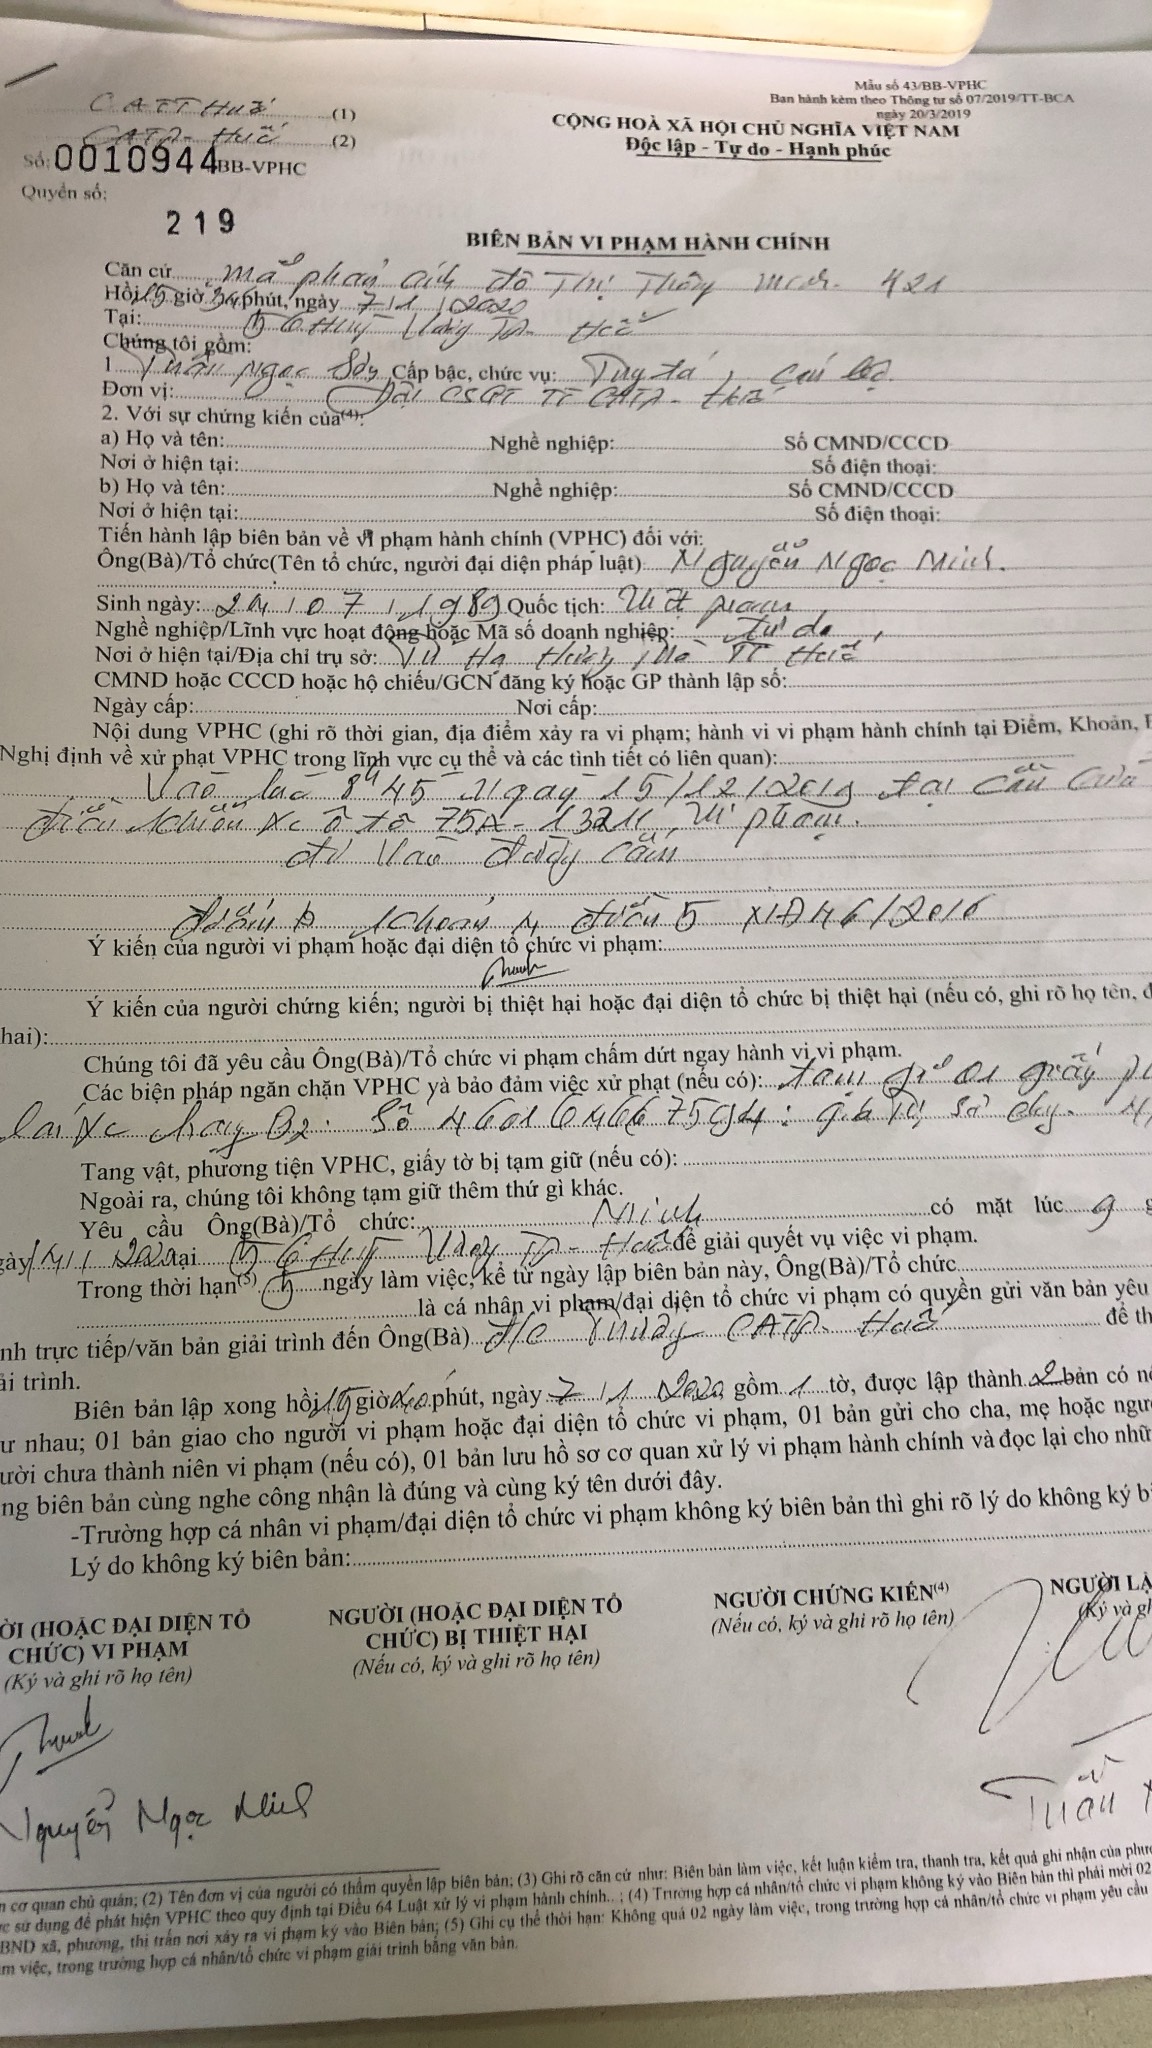 Mẫu số 43/BB-VPHC
Ban hành kèm theo Thông tư số 07/2019/TT-BCA
ngày 20/3/2019
CATT Huế (1)
CATP- Huế (2)
Số: 0010944 BB-VPHC
Quyển số:
219
CỘNG HOÀ XÃ HỘI CHỦ NGHĨA VIỆT NAM
Độc lập - Tự do - Hạnh phúc
BIÊN BẢN VI PHẠM HÀNH CHÍNH
Căn cứ phản ánh Đô Thị Thông minh 421
Hồi 15 giờ 34 phút, ngày 7/1/2020
Tại: TP- Huế
Chúng tôi gồm:
1 Tuấn Ngọc Cấp bậc, chức vụ: cán bộ
Đơn vị: Đội CSGT TT CATP- Huế
2. Với sự chứng kiến của(4):
a) Họ và tên: Nghề nghiệp: Số CMND/CCCD
Nơi ở hiện tại: Số điện thoại:
b) Họ và tên: Nghề nghiệp: Số CMND/CCCD
Nơi ở hiện tại: Số điện thoại:
Tiến hành lập biên bản về vi phạm hành chính (VPHC) đối với:
Ông(Bà)/Tổ chức(Tên tổ chức, người đại diện pháp luật) Nguyễn Ngọc Minh.
Sinh ngày: 24/07/1989 Quốc tịch: Việt Nam
Nghề nghiệp/Lĩnh vực hoạt động hoặc Mã số doanh nghiệp: Tự do
Nơi ở hiện tại/Địa chỉ trụ sở: TT Huế
CMND hoặc CCCD hoặc hộ chiếu/GCN đăng ký hoặc GP thành lập số:
Ngày cấp: Nơi cấp:
Nội dung VPHC (ghi rõ thời gian, địa điểm xảy ra vi phạm; hành vi vi phạm hành chính tại Điểm, Khoản,
Nghị định về xử phạt VPHC trong lĩnh vực cụ thể và các tình tiết có liên quan):
Vào lúc 8h45 ngày 15/12/2019 tại
điều khiển xe ô tô 75A- vi phạm.
đi vào đường cấm
điểm b khoản 4 điều 5 NĐ 46/2016
Ý kiến của người vi phạm hoặc đại diện tổ chức vi phạm:
Ý kiến của người chứng kiến; người bị thiệt hại hoặc đại diện tổ chức bị thiệt hại (nếu có, ghi rõ họ tên,
hai):
Chúng tôi đã yêu cầu Ông(Bà)/Tổ chức vi phạm chấm dứt ngay hành vi vi phạm.
Các biện pháp ngăn chặn VPHC và bảo đảm việc xử phạt (nếu có): tạm giữ 01 giấy
lái xe hạng B2. Số
Tang vật, phương tiện VPHC, giấy tờ bị tạm giữ (nếu có):
Ngoài ra, chúng tôi không tạm giữ thêm thứ gì khác.
Yêu cầu Ông(Bà)/Tổ chức: Minh có mặt lúc 9
14/1/2020 tại TP- Huế để giải quyết vụ việc vi phạm.
Trong thời hạn(5) ngày làm việc, kể từ ngày lập biên bản này, Ông(Bà)/Tổ chức
là cá nhân vi phạm/đại diện tổ chức vi phạm có quyền gửi văn bản yêu
nh trực tiếp/văn bản giải trình đến Ông(Bà) đ/c trưởng CATP- Huế để th
ải trình.
Biên bản lập xong hồi 15 giờ 40 phút, ngày 7/1/2020 gồm 1 tờ, được lập thành 2 bản có
ư nhau; 01 bản giao cho người vi phạm hoặc đại diện tổ chức vi phạm, 01 bản gửi cho cha, mẹ hoặc
ười chưa thành niên vi phạm (nếu có), 01 bản lưu hồ sơ cơ quan xử lý vi phạm hành chính và đọc lại cho
ng biên bản cùng nghe công nhận là đúng và cùng ký tên dưới đây.
-Trường hợp cá nhân vi phạm/đại diện tổ chức vi phạm không ký biên bản thì ghi rõ lý do không ký
Lý do không ký biên bản:
ỜI (HOẶC ĐẠI DIỆN TỔ CHỨC) VI PHẠM
(Ký và ghi rõ họ tên)
NGƯỜI (HOẶC ĐẠI DIỆN TỔ CHỨC) BỊ THIỆT HẠI
(Nếu có, ký và ghi rõ họ tên)
NGƯỜI CHỨNG KIẾN(4)
(Nếu có, ký và ghi rõ họ tên)
NGƯỜI
(Ký và
Nguyễn Ngọc Minh
Tuấn
cơ quan chủ quản; (2) Tên đơn vị của người có thẩm quyền lập biên bản; (3) Ghi rõ căn cứ như: Biên bản làm việc, kết luận kiểm tra, thanh tra, kết quả ghi nhận của
sử dụng để phát hiện VPHC theo quy định tại Điều 64 Luật xử lý vi phạm hành chính.. ; (4) Trường hợp cá nhân/tổ chức vi phạm không ký vào Biên bản thì phải mời 02
BND xã, phường, thị trấn nơi xảy ra vi phạm ký vào Biên bản; (5) Ghi cụ thể thời hạn: Không quá 02 ngày làm việc, trong trường hợp cá nhân/tổ chức vi phạm yêu cầu
m việc, trong trường hợp cá nhân/tổ chức vi phạm giải trình bằng văn bản.